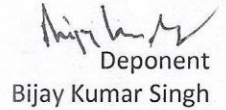 Deponent
Bijay Kumar Singh